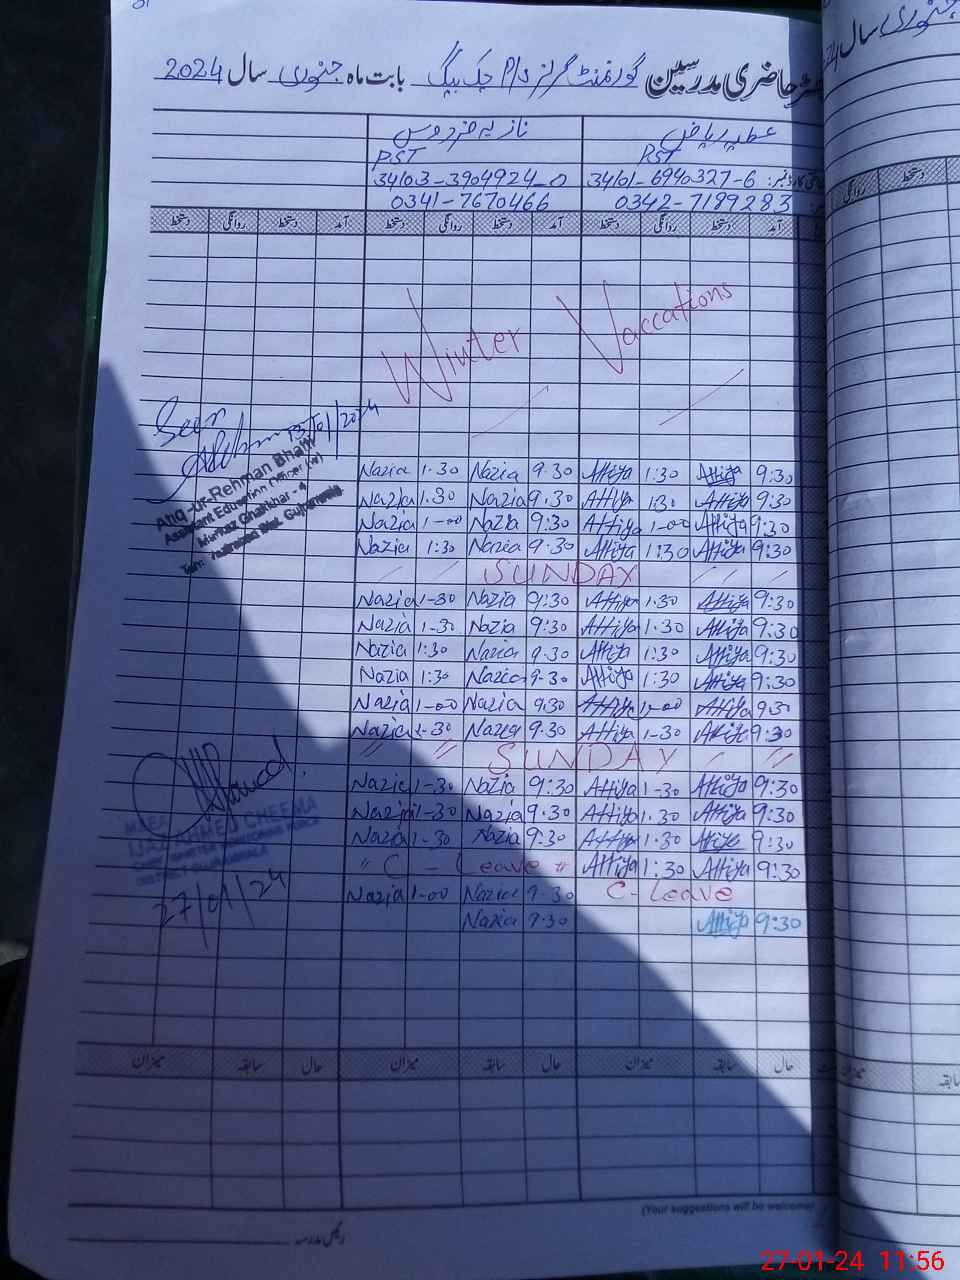 رجسٹر حاضری مدرسین گورنمنٹ گرلز P/S چک بیگ بابت ماہ جنوری سال 2024
عطیہ ریاض نازیہ فردوس
PST PST
34101-6940327-6 34103-3904924-0
0342-7189283 0341-7670466
آمد دستخط روانگی دستخط آمد دستخط روانگی دستخط آمد دستخط روانگی دستخط
Winter Vaccations
Seen
13/01/2024
Atiq-ur-Rehman Bhatti
Assistant Education Officer (W)
Markaz Ghakhar - 4
Nazia 1-30 Nazia 9-30 Attiya 1:30 Attiya 9:30
Nazia 1:30 Nazia 9:30 Attiya 1:30 Attiya 9:30
Nazia 1-00 Nazia 9:30 Attiya 1-00 Attiya 9:30
Nazia 1:30 Nazia 9:30 Attiya 1:30 Attiya 9:30
SUNDAY
Nazia 1-30 Nazia 9:30 Attiya 1:30 Attiya 9:30
Nazia 1-30 Nazia 9:30 Attiya 1:30 Attiya 9:30
Nazia 1:30 Nazia 9:30 Attiya 1:30 Attiya 9:30
Nazia 1:30 Nazia 9-30 Attiya 1:30 Attiya 9:30
Nazia 1-00 Nazia 9:30 Attiya 1-00 Attiya 9:30
Nazia 1-30 Nazia 9:30 Attiya 1-30 Attiya 9:30
" " SUNDAY "
Nazia 1-30 Nazia 9:30 Attiya 1-30 Attiya 9:30
Nazia 1-30 Nazia 9:30 Attiya 1:30 Attiya 9:30
Nazia 1-30 Nazia 9:30 Attiya 1:30 Attiya 9:30
" C - Leave " Attiya 1:30 Attiya 9:30
Nazia 1-00 Nazia 9-30 C-Leave
Nazia 9:30 Attiya 9:30
IJAZ AHMED CHEEMA
27/01/24
حال سابقہ میزان حال سابقہ میزان حال سابقہ میزان
(Your suggestions will be welcome)
رئیس مدرسہ
27-01-24 11:56